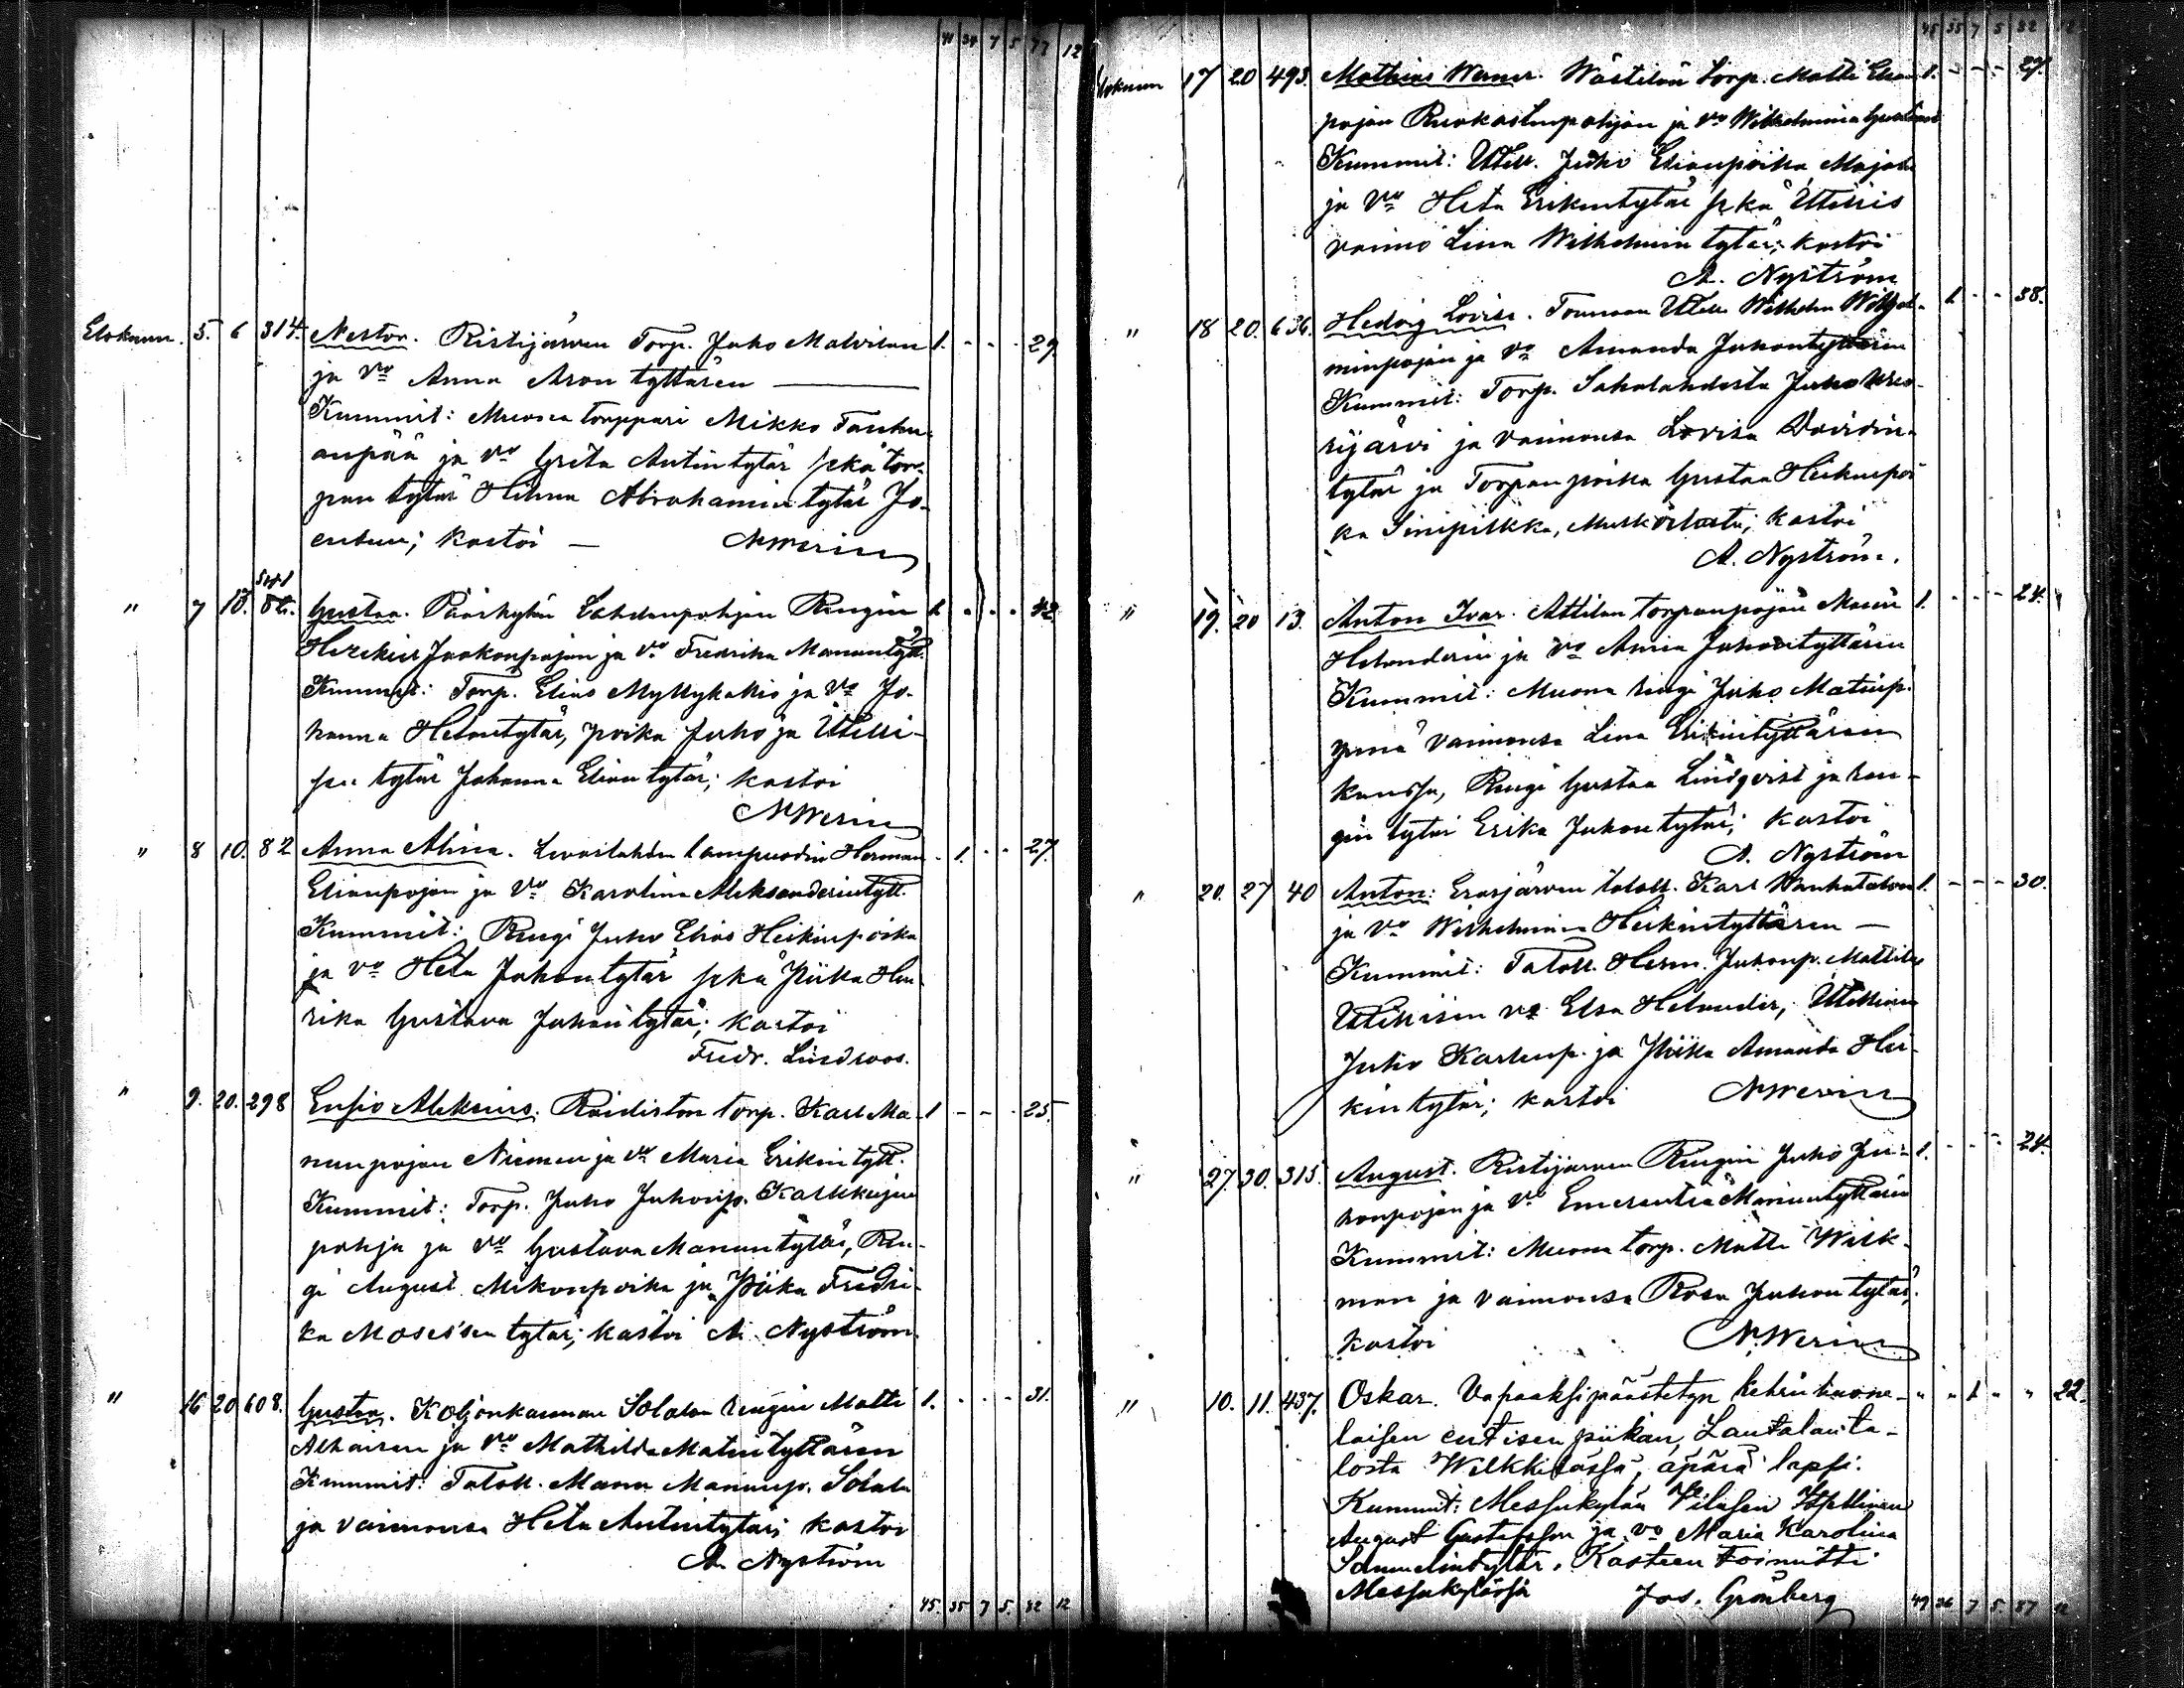 41 34 7 5 77 12
Elokuun. 5. 6 314. Nestor. Ristijärven Torp. Juho Malvilan 1. - - - 29.
ja vo Anna Aron tyttären
Kummit: Muona torppari Mikko Tauhu-
anpää ja vo Greta Antintytär sekä tor-
pan tytär Hilma Abrahamin tytär Jo-
kastoi — N Werin
" 7 13. Gustaa. Pääskylän Lahdenpohjan Rengin 1 - - - 42
Herekiel Jaakonpojan ja vo Fredrika Manuntytt.
Kummit: Torp. Elias Myllykallio ja vo Jo-
hanna Helontytär, poika Juho ja Itselli-
sen tytär Johanna Eliantytär; kastoi
N Werin
" 8 10. 82 Anna Alina. Leväslahden Herman - 1. - - 27.
Elianpojan ja vo Karolina Aleksanderintytt.
Kummit: Rengi Juho Elias Heikinpoika
ja vo Heta Juhontytär sekä Piika Hen-
rika Gustava Juhontytär; kastoi
Fredr. Lindroos.
" 9. 20. 298 Ensio Aleksius. Raidiston torp. Karl Ma- 1 - - - 25.
nunpojan Niemen ja vo Maria Erikintytt.
Kummit: Torp. Juho Juhonp. Karkkujen
pohja ja vo Gustava Manuntytär, Ren-
gi August Mikonpoika ja Piika Fredri-
ka Moses'sen tytär; kastoi A. Nyström.
" 16 20 608. Gustaa. Koljonkannan Solalan rengin Matti 1. - - - 31.
Alhaisen ja vo Mathilda Matintyttären
Kummit: Taloll. Manu Manunp. Solala
ja vaimonsa Heta Antintytär; kastoi
A. Nyström
45. 35 7 5. 82 12
45 35 7 5 82 12
Elokuun 17 20 493. Mathias Werner. Wästilän Torp. Matti Elian 1. - - - 27.
pojan Ruokostenpohjan ja vo Wilhelmina
Kummit: Itsell. Juho Elianpoika
ja vo Heta Erikintytär sekä Itsellis
vaimo Lina Wilhelmin tytär; kastoi
A. Nyström
" 18 20. 636. Hedvig Lovisa. Tounaan Itsell. Wilhelm Wilhel- - 1. - - 38.
minpojan ja vo Amanda Juhontyttären
Kummit: Torp. Sahalahdesta Juho
järvi ja vaimonsa Lovisa Davidin-
tytär ja Torpan poika Gustaa Heikinpoi-
ka Sinipilkka, kastoi
A. Nyström.
" 19. 20 13. Anton Ivar. Attilan torpanpojan Manu 1. - - - 24.
Helanderin ja vo Anna Juhontyttären
Kummit: Muona rengi Juho Matinp.
vaimonsa Lena Erikintyttären
kanssa, Rengi Gustaa Lindqvist ja ren-
gin tytär Erika Juhontytär; kastoi
A. Nyström
" 20. 27 40 Anton: Eräsjärven taloll. Karl Wanhatalon 1. - - - 30.
ja vo Wilhelmina Heikintyttären —
Kummit: Taloll. Herm. Juhonp. Mattila
Itsellisen vo Elsa Helander, Itsellinen
Juho Karlinp. ja Piika Amanda Hei-
kin tytär; kastoi N Werin
" 27. 30. 315. August. Ristijärven Rengin Juho Ju- 1. - - - 24.
honpojan ja vo Emerentia Manuntyttären
Kummit: Muona torp. Matti Wilk-
man ja vaimonsa Rosa Juhontytär;
kastoi N. Werin
" 10. 11. 437. Oskar. Vapaaksi päästetyn kehruuhuone- " " 1 " " 22.
laisen entisen piikan, Lauta
losta Welkkilässä, äpärä lapsi.
Kummit: Messukylän Itsellinen
August Gustafsson ja vo Maria Karolina
Samuelintytär. Kasteen toimitti
Messukylässä Jos. Grönberg
49 36 7 5. 87 12